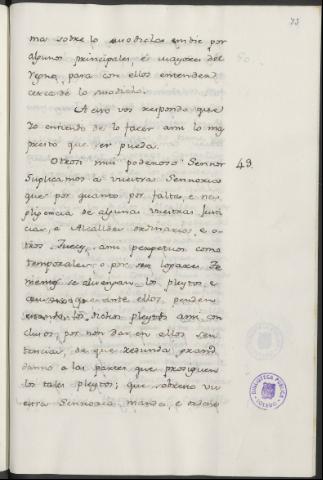 73
ma sobre lo susodicho embie por
algunos principales, é mayores del
regno, para con ellos entender
cerca de lo susodicho.
A esto vos respondo que
Yo entiendo de lo facer assi lo mas
presto que ser pueda.
Otrosi mui poderoso Sennor 49.
Suplicamos a vuestra Sennoria
que por quanto por falta, e ne-
gligencia de algunas vuestras Justi-
cias, e Alcalldes ordinarios, e o-
tros Jueces, assi perpetuos como
temporales, o por sus logares Te-
nientes se aluengan los pleytos, e
que ante ellos penden
estando los dichos pleytos assi con
clusos, por non dar en ellos sen-
tencias, de que redunda grand
danno a las partes que prosiguen
los tales pleytos; que sobresto vu-
estra Sennoria mande, e ordene
BIBLIOTECA PUBLICA
TOLEDO